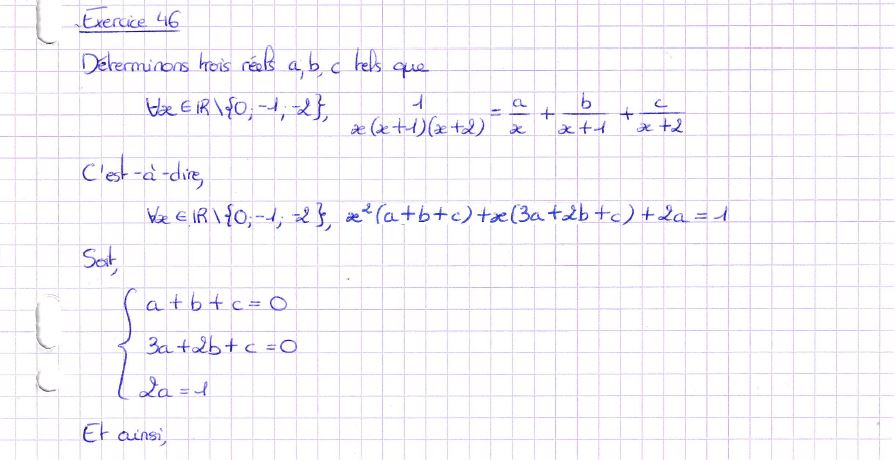 Exercice 46
Déterminons trois réels a, b, c tels que
∀x ∈ ℝ\{0; -1; -2}, 1/(x(x+1)(x+2)) = a/x + b/(x+1) + c/(x+2)
C'est-à-dire,
∀x ∈ ℝ\{0; -1; -2}, x²(a+b+c)+x(3a+2b+c)+2a = 1
Soit,
{ a + b + c = 0
3a + 2b + c = 0
2a = 1
Et ainsi,